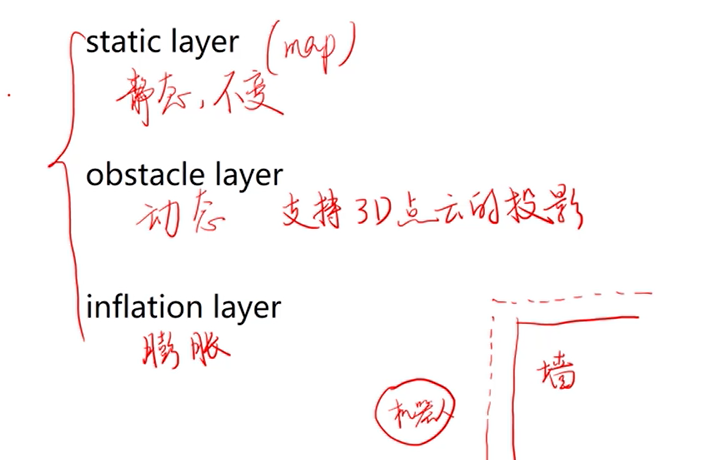 static layer (map)
静态，不变
obstacle layer
动态 支持3D点云的投影
inflation layer
膨胀
墙
机器人